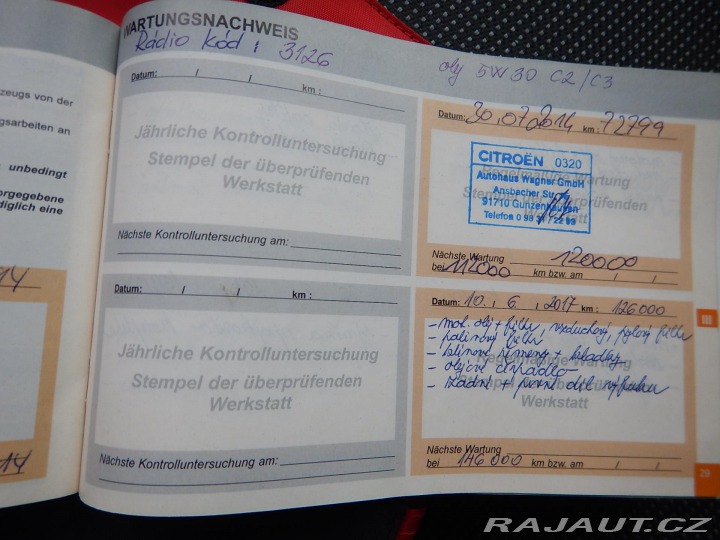 WARTUNGSNACHWEIS
Rádio kód : 3126
olj 5W30 C2/C3
zeugs von der
gsarbeiten an
unbedingt
orgegebene
diglich eine
14
14
Datum: / / km :
Jährliche Kontrolluntersuchung
Stempel der überprüfenden
Werkstatt
Nächste Kontrolluntersuchung am:
Datum: 30.07.2014 km : 72799
Regelmäßige Wartung
Stempel der überprüfenden
Werkstatt
CITROËN 0320
Autohaus Wagner GmbH
Ansbacher Str.
91710 Gunzenhausen
Telefon 0 98 31 / 22 99
Nächste Wartung 120000
bei 112000 km bzw. am / /
Datum: / / km :
Jährliche Kontrolluntersuchung
Stempel der überprüfenden
Werkstatt
Nächste Kontrolluntersuchung am:
Datum: 10. 6. 2017 km : 126000
- mot. olej + filtr, vzduchový, pylový filtr
- palivový filtr
- klínové řemeny + kladky
- olejové čerpadlo
- zadní + první díl výfuku
Regelmäßige Wartung
Stempel der überprüfenden
Werkstatt
Nächste Wartung
bei 146000 km bzw. am / /
III
29
RAJAUT.CZ